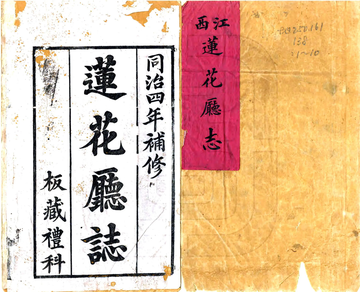 同治四年補修
蓮花廳誌
板藏禮科
江西
蓮花廳志